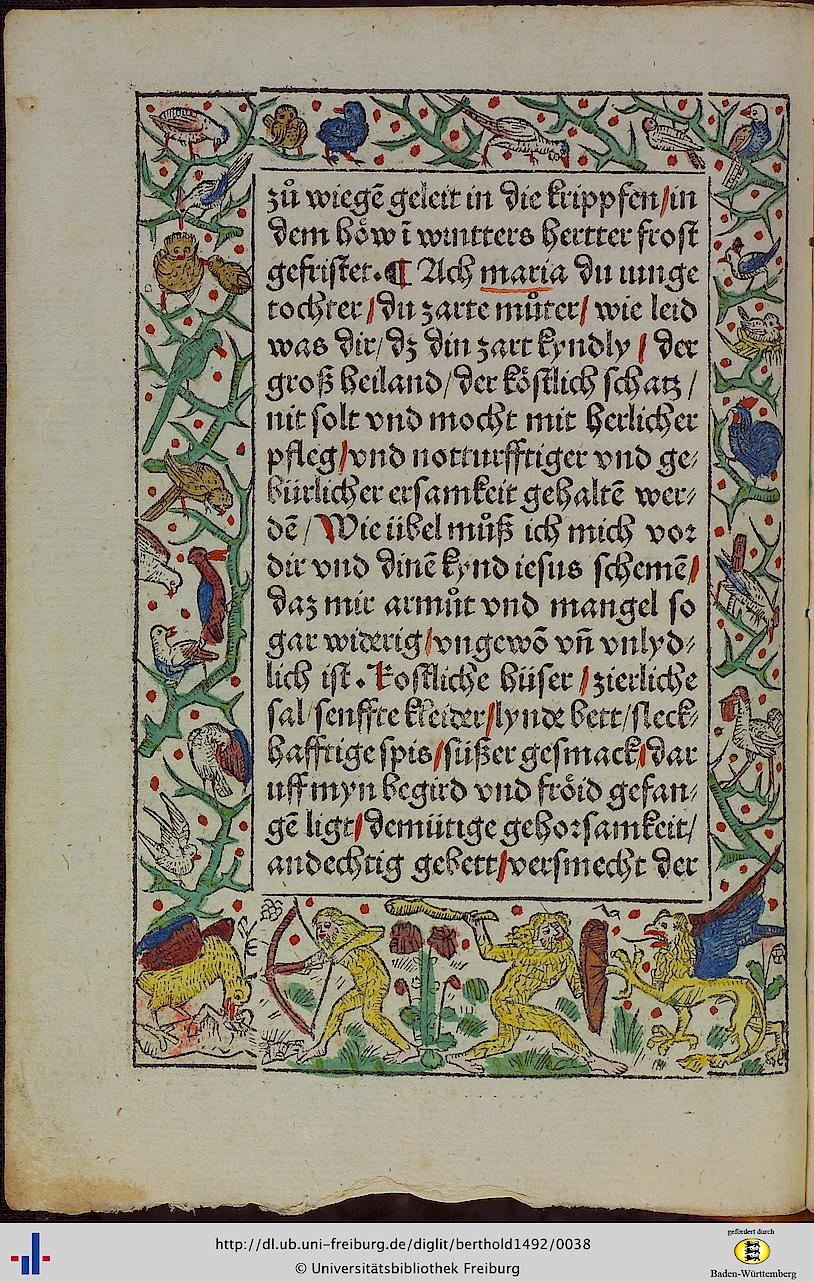 zů wiegē geleit in die krippfen/in
dem höw ī wintters hertter frost
gefristet. ¶ Ach maria du iunge
tochter/du zarte můter/wie leid
was dir/dz din zart kyndly/der
groß heiland/der köstlich schatz/
nit solt vnd mocht mit herlicher
pfleg/vnd notturfftiger vnd ge⸗
bürlicher ersamkeit gehaltē wer⸗
dē/Wie übel můß ich mich vor
dir vnd dinē kynd iesus schemē/
daz mir armůt vnd mangel so
gar widerig/vngewō vn̄ vnlyd⸗
lich ist. Kostliche hüser/zierliche
sal/senffte kleider/lynde bett/sleck⸗
hafftige spis/süßer gesmack/dar
uff myn begird vnd fröid gefan⸗
gē ligt/demütige gehorsamkeit/
andechtig gebett/versmecht der
http://dl.ub.uni-freiburg.de/diglit/berthold1492/0038
© Universitätsbibliothek Freiburg
gefördert durch
Baden-Württemberg